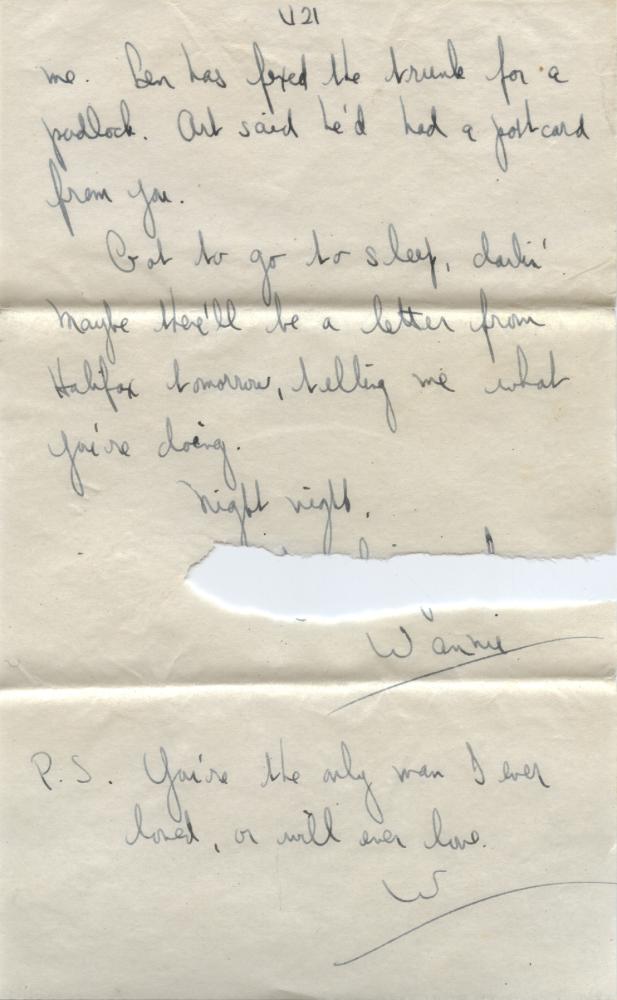 V21
me. Ben has fixed the trunk for a
padlock. Art said he'd had a postcard
from you.
Got to go to sleep, darlin'
Maybe there'll be a letter from
Halifax tomorrow, telling me what
you're doing.
Night night.
Wannie
P.S. You're the only man I ever
loved, or will ever love.
W